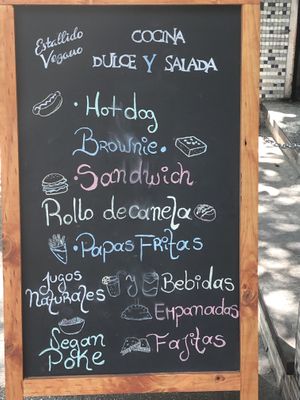 Estallido
Vegano
COCINA
DULCE Y SALADA
• Hot dog
BROWNIE •
• Sandwich
Rollo de canela
• PAPAS FRITAS
Jugos
Naturales
Bebidas
Empanadas
Vegan
Poke
Fajitas